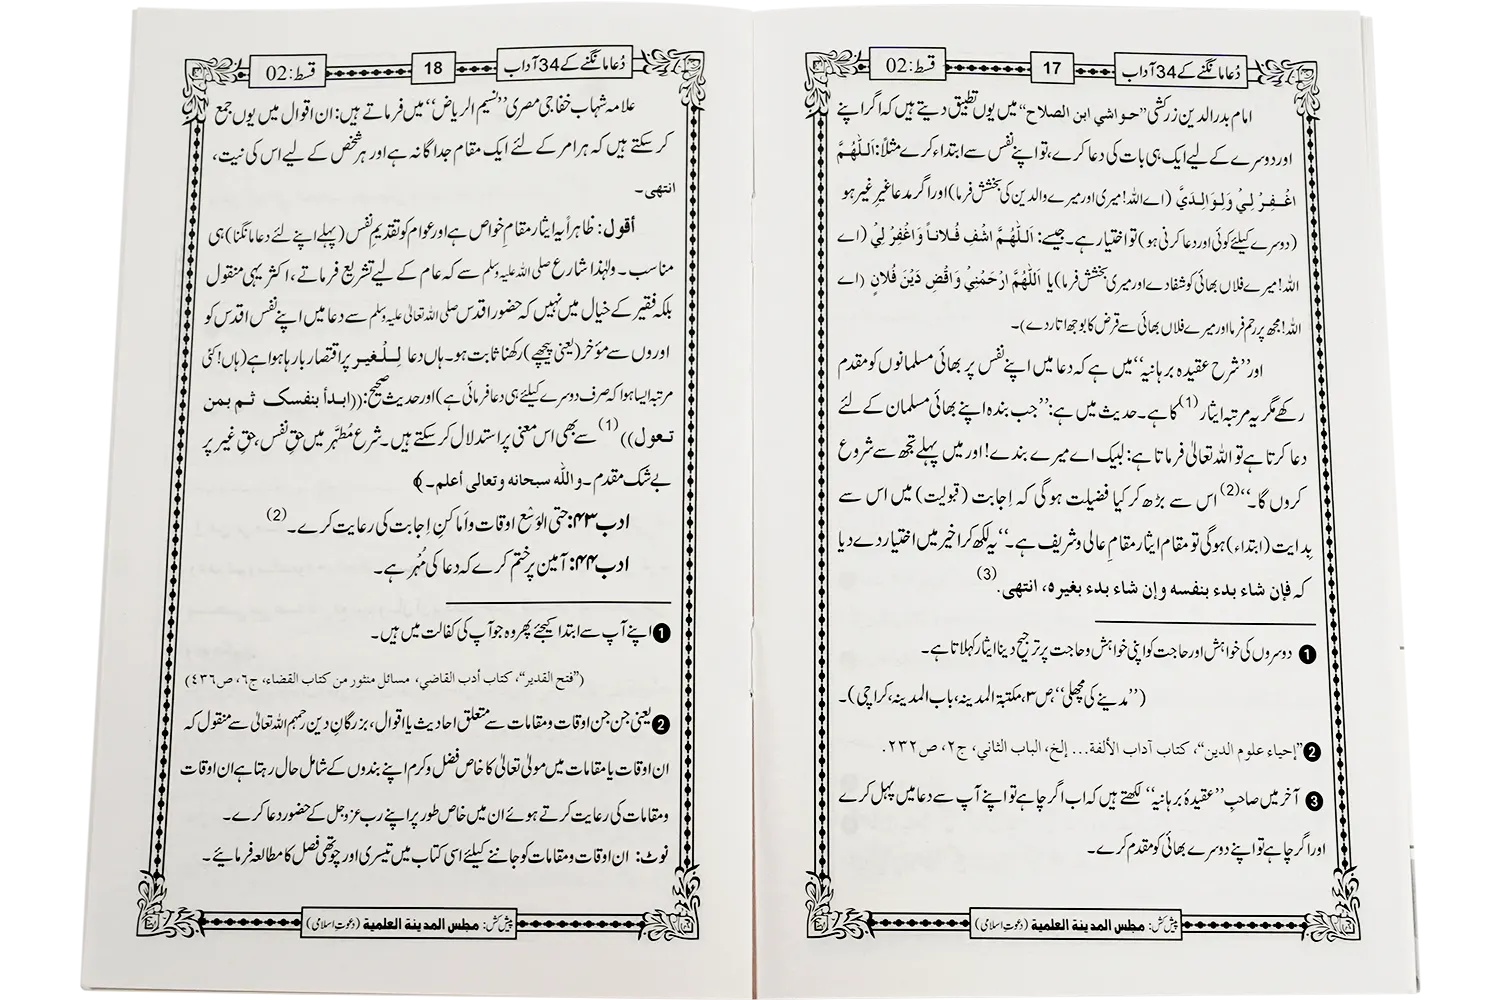 دُعا مانگنے کے 34 آداب
17
قسط: 02
امام بدرالدین زرکشی ”حواشي ابن الصلاح“ میں یوں تطبیق دیتے ہیں کہ اگر اپنے
اور دوسرے کے لیے ایک ہی بات کی دعا کرے، تو اپنے نفس سے ابتداء کرے مثلاً: اَللّٰھُمَّ
اغْفِرْ لِيْ وَلِوَالِدَيَّ (اے اللہ! میری اور میرے والدین کی بخشش فرما) اور اگر مدعا غیرِ غیر ہو
(دوسرے کیلئے کوئی اور دعا کرنی ہو) تو اختیار ہے۔ جیسے: اَللّٰھُمَّ اشْفِ فُلَاناً وَاغْفِرْ لِيْ (اے
اللہ! میرے فلاں بھائی کو شفا دے اور میری بخشش فرما) یا اَللّٰھُمَّ ارْحَمْنِيْ وَاقْضِ دَيْنَ فُلَانٍ (اے
اللہ! مجھ پر رحم فرما اور میرے فلاں بھائی سے قرض کا بوجھ اتار دے)۔
اور ”شرح عقیدہ برہانیہ“ میں ہے کہ دعا میں اپنے نفس پر بھائی مسلمانوں کو مقدم
رکھے مگر یہ مرتبہ ایثار (1) کا ہے۔ حدیث میں ہے: ”جب بندہ اپنے بھائی مسلمان کے لئے
دعا کرتا ہے تو اللہ تعالیٰ فرماتا ہے: لبیک اے میرے بندے! اور میں پہلے تجھ سے شروع
کروں گا۔“ (2) اس سے بڑھ کر کیا فضیلت ہوگی کہ اِجابت (قبولیت) میں اس سے
بِدایت (ابتداء) ہوگی تو مقام ایثار مقامِ عالی و شریف ہے۔“ یہ لکھ کر اخیر میں اختیار دے دیا
کہ فإن شاء بدء بنفسه وإن شاء بدء بغيره، انتهى. (3)
1 دوسروں کی خواہش اور حاجت کو اپنی خواہش و حاجت پر ترجیح دینا ایثار کہلاتا ہے۔
(”مدینے کی مچھلی“ ص۳، مکتبۃ المدینہ، باب المدینہ، کراچی)۔
2 ”إحياء علوم الدين“، كتاب آداب الألفة... إلخ، الباب الثاني، ج۲، ص۲۳۲.
3 آخر میں صاحبِ ”عقیدۂ برہانیہ“ لکھتے ہیں کہ اب اگر چاہے تو اپنے آپ سے دعا میں پہل کرے
اور اگر چاہے تو اپنے دوسرے بھائی کو مقدم کرے۔
پیش کش: مجلس المدینة العلمیة (دعوتِ اسلامی)
دُعا مانگنے کے 34 آداب
18
قسط: 02
علامہ شہاب خفاجی مصری ”نسیم الریاض“ میں فرماتے ہیں: ان اقوال میں یوں جمع
کر سکتے ہیں کہ ہر امر کے لئے ایک مقام جداگانہ ہے اور ہر شخص کے لیے اس کی نیت،
انتهى۔
أقول: ظاہراً یہ ایثار مقامِ خواص ہے اور عوام کو تقدیمِ نفس (پہلے اپنے لئے دعا مانگنا) ہی
مناسب۔ ولہٰذا شارع صلی اللہ علیہ وسلم سے کہ عام کے لیے تشریع فرماتے، اکثر یہی منقول
بلکہ فقیر کے خیال میں نہیں کہ حضور اقدس صلی اللہ تعالیٰ علیہ وسلم سے دعا میں اپنے نفس اقدس کو
اوروں سے مؤخر (یعنی پیچھے) رکھنا ثابت ہو۔ ہاں دعا لِلْغیر پر اقتصار بارہا ہوا ہے (ہاں! کئی
مرتبہ ایسا ہوا کہ صرف دوسرے کیلئے ہی دعا فرمائی ہے) اور حدیث صحیح: ((ابدأ بنفسك ثم بمن
تعول)) (1) سے بھی اس معنی پر استدلال کر سکتے ہیں۔ شرع مُطہَّر میں حقِ نفس، حقِ غیر پر
بے شک مقدم۔ والله سبحانه وتعالى أعلم۔ ﴾
ادب ۴۳: حتی الوُسْع اوقات و اَماکنِ اِجابت کی رعایت کرے۔ (2)
ادب ۴۴: آمین پر ختم کرے کہ دعا کی مُہر ہے۔
1 اپنے آپ سے ابتدا کیجئے پھر وہ جو آپ کی کفالت میں ہیں۔
(”فتح القدير“، كتاب أدب القاضي، مسائل منثور من كتاب القضاء، ج۶، ص۴۳۶)
2 یعنی جن جن اوقات و مقامات سے متعلق احادیث یا اقوالِ بزرگانِ دین رحمہم اللہ تعالیٰ سے منقول کہ
ان اوقات یا مقامات میں مولیٰ تعالیٰ کا خاص فضل و کرم اپنے بندوں کے شامل حال رہتا ہے ان اوقات
و مقامات کی رعایت کرتے ہوئے ان میں خاص طور پر اپنے رب عزوجل کے حضور دعا کرے۔
نوٹ: ان اوقات و مقامات کو جاننے کیلئے اسی کتاب میں تیسری اور چوتھی فصل کا مطالعہ فرمائیے۔
پیش کش: مجلس المدینة العلمیة (دعوتِ اسلامی)